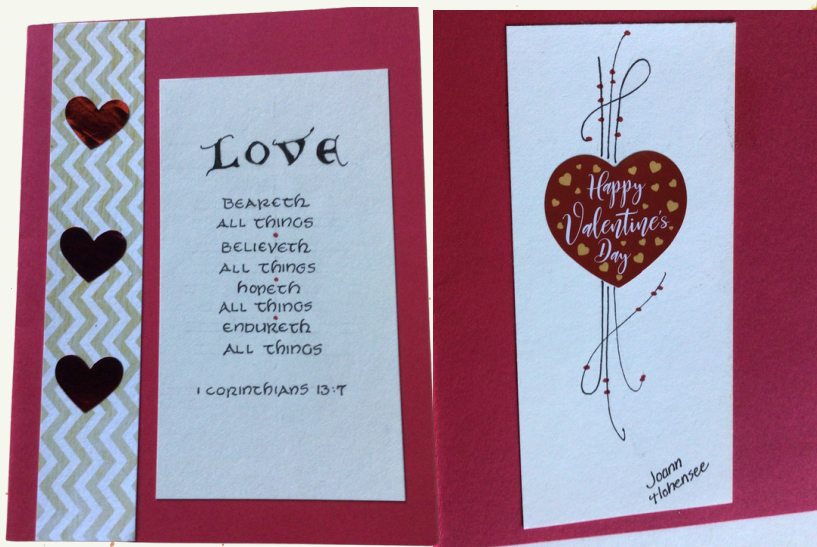 LOVE
BEARETH
ALL THINGS
BELIEVETH
ALL THINGS
hOPETh
ALL THINGS
ENDURETH
ALL THINGS
1 CORINTHIANS 13:7
Happy
Valentine's
Day
Joann
Hohensee